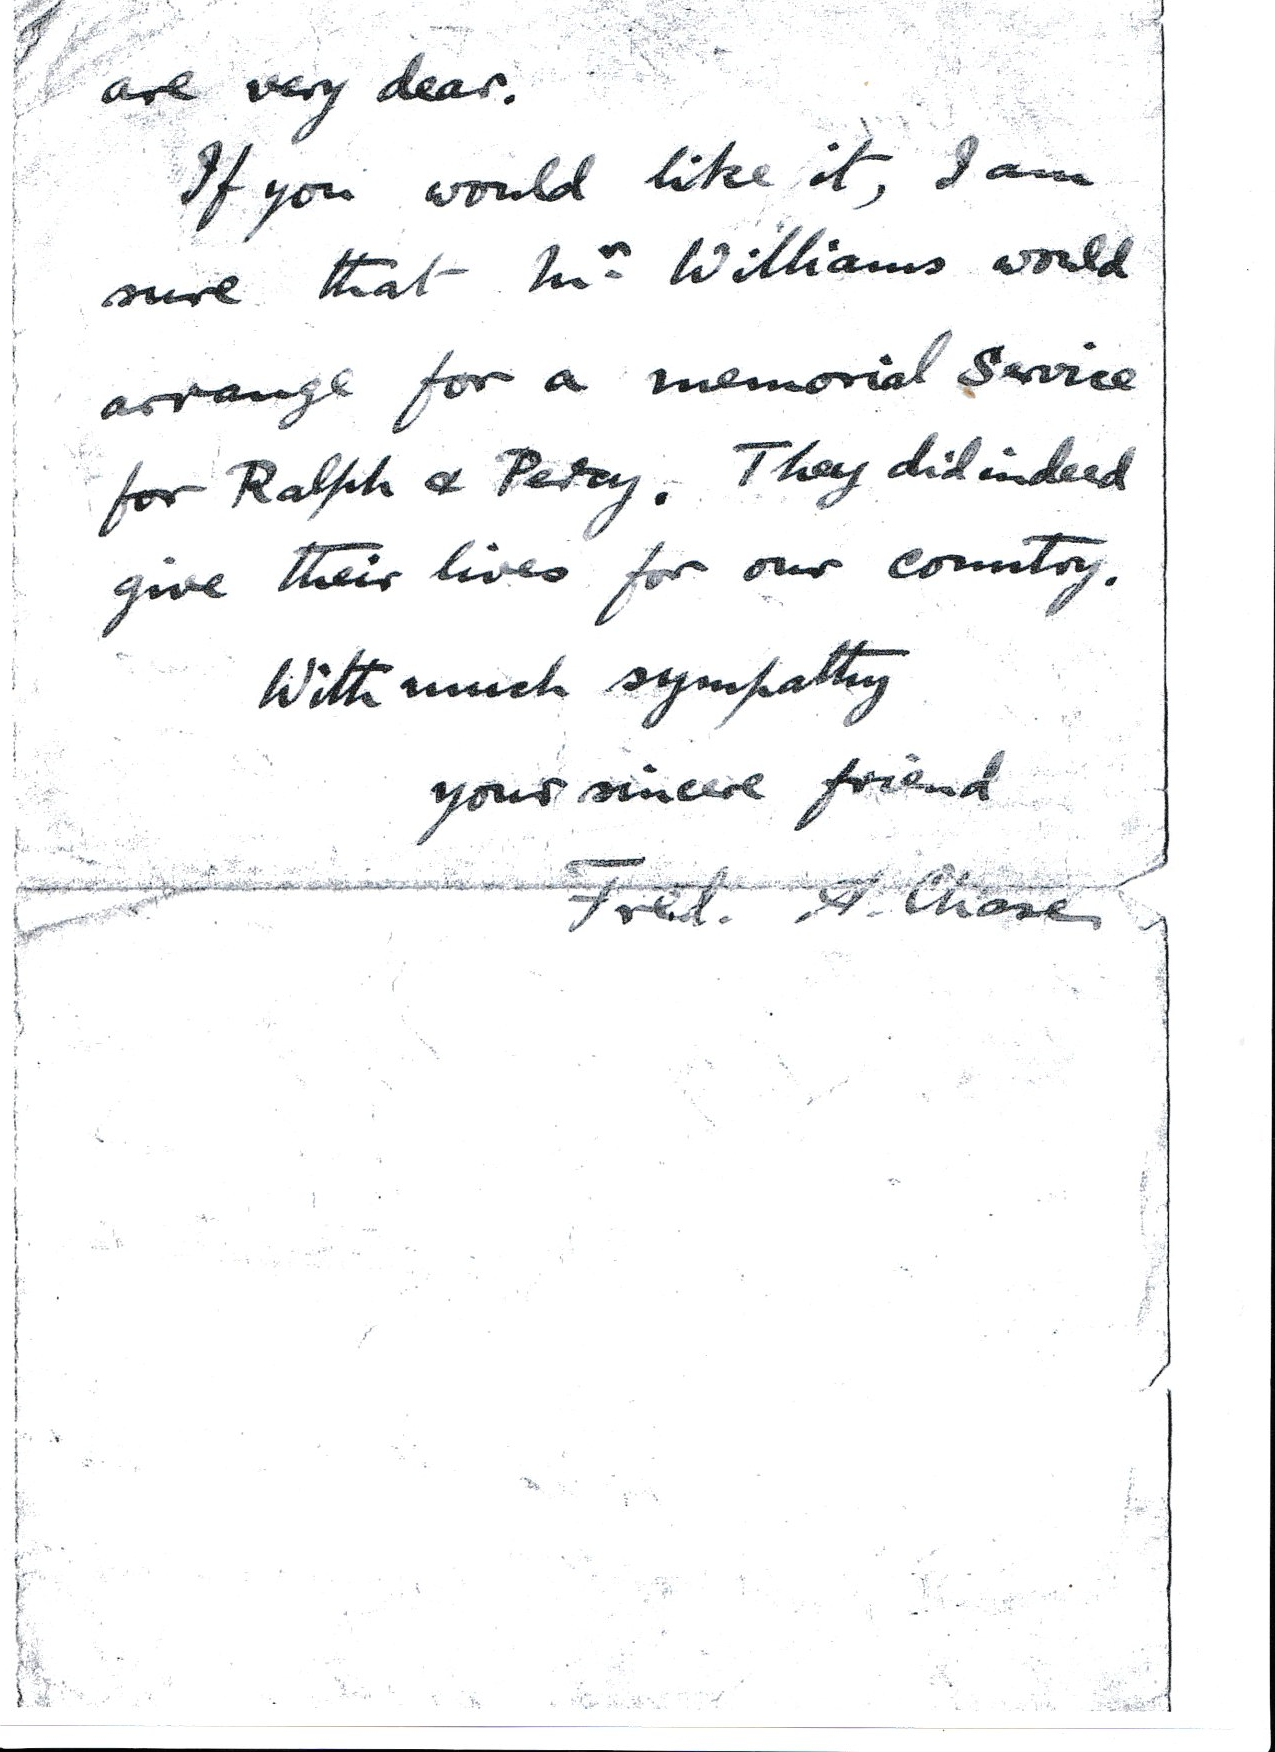 are very dear.
If you would like it, I am
sure that Mr Williams would
arrange for a memorial Service
for Ralph & Percy. They did indeed
give their lives for our country.
With much sympathy
your sincere friend
Fred. A. Chase